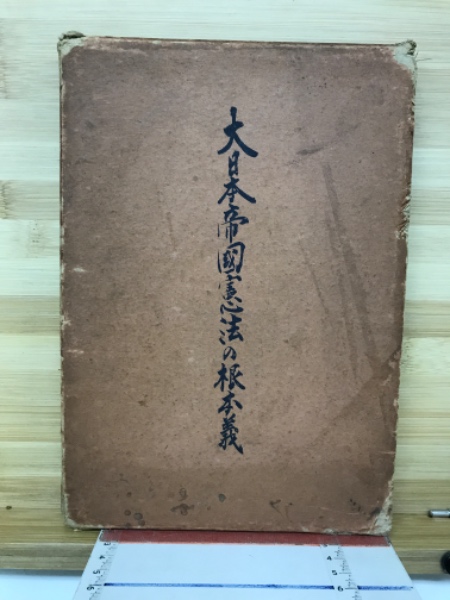 大日本帝國憲法の根本義